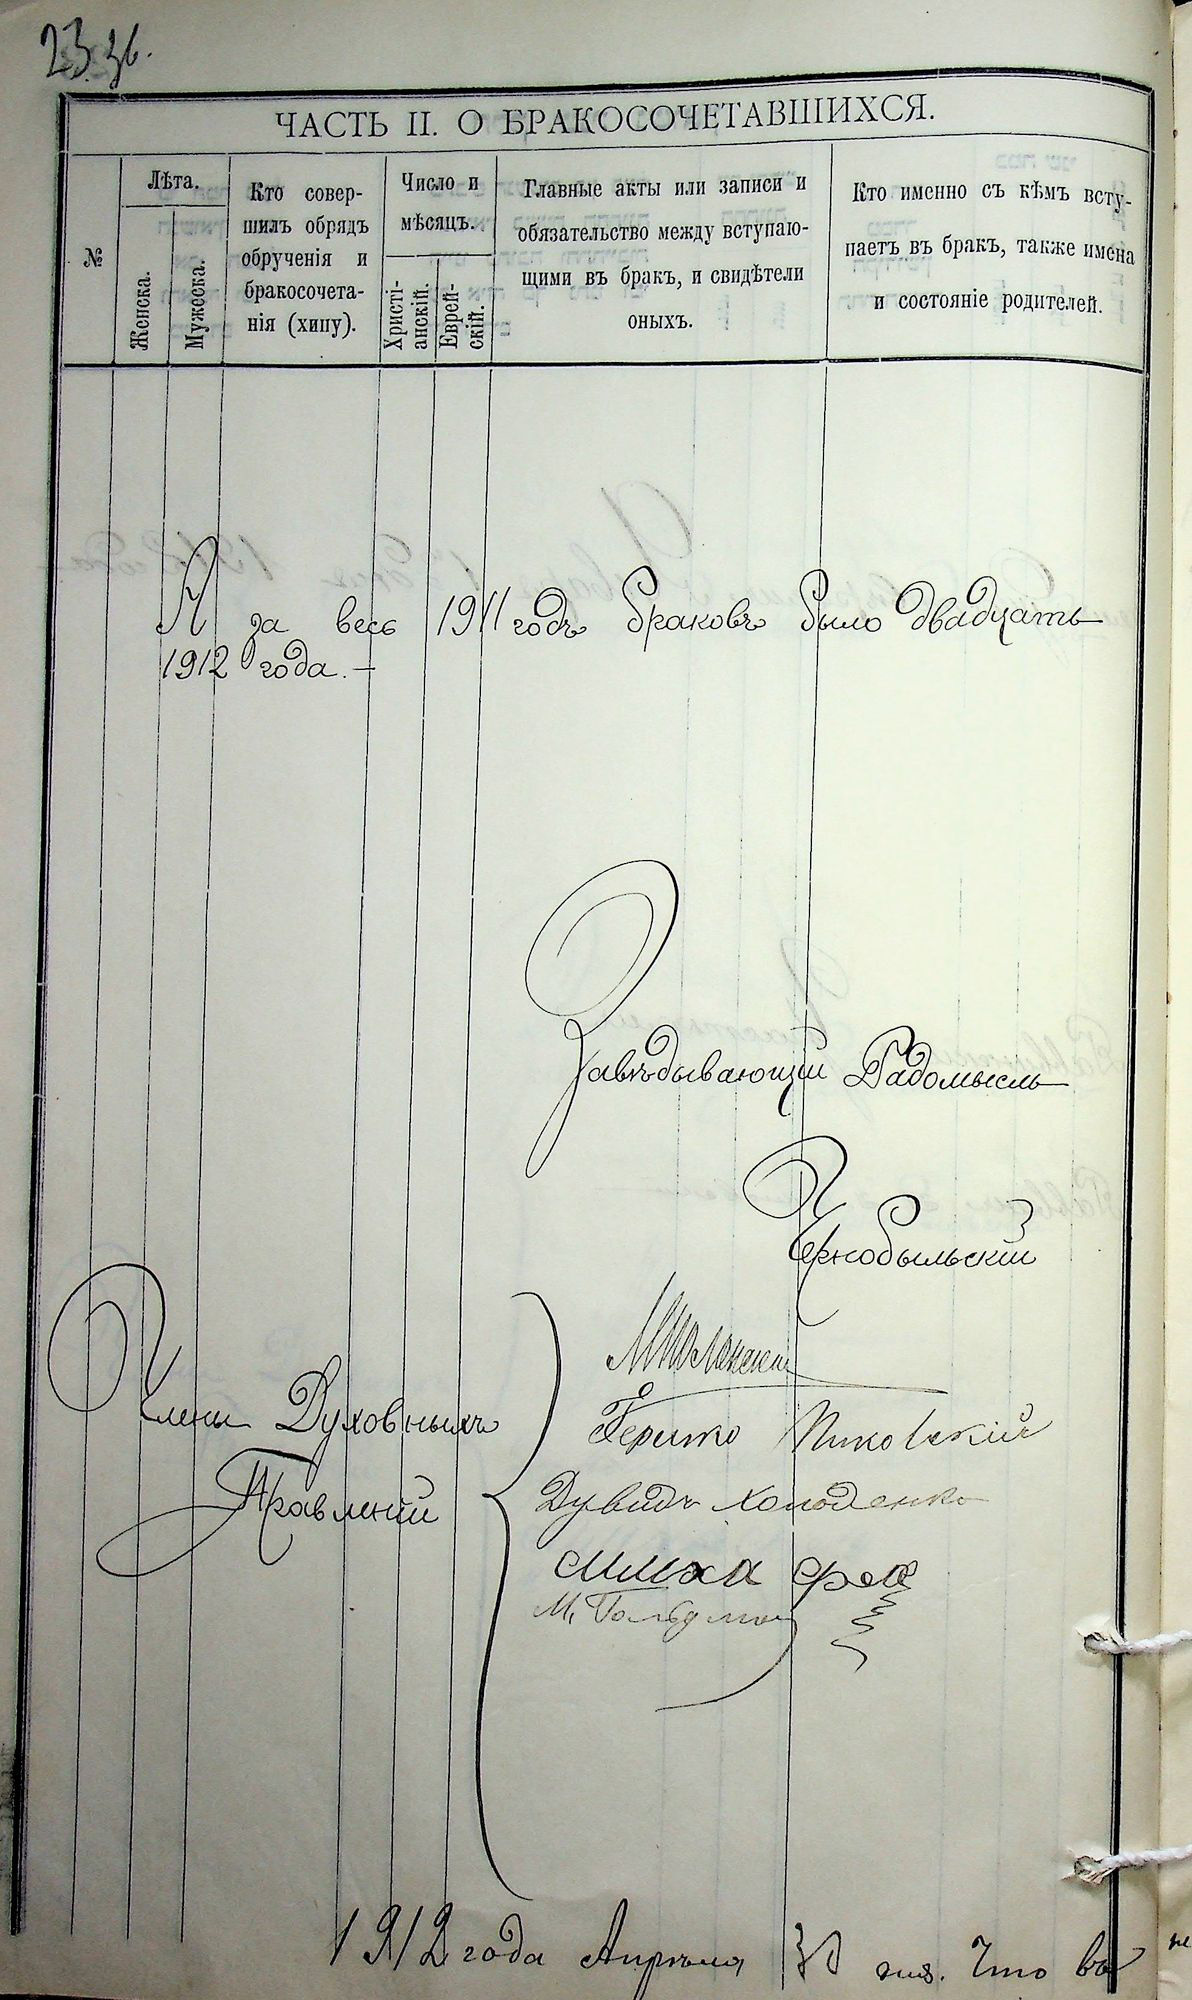 23 36.
ЧАСТЬ II. О БРАКОСОЧЕТАВШИХСЯ.
№
Лѣта.
Женска.
Мужеска.
Кто совер-
шилъ обрядъ
обрученія и
бракосочета-
нія (хипу).
Число и
мѣсяцъ.
Христі-
анскій.
Еврей-
скій.
Главные акты или записи и
обязательство между вступаю-
щими въ бракъ, и свидѣтели
оныхъ.
Кто именно съ кѣмъ всту-
паетъ въ бракъ, также имена
и состояніе родителей.
А за весь 1911 годъ браковъ было двадцать
1912 года.—
Завѣдывающій Радомысль
Чернобыльскій
Члены Духовныхъ
Правленій
Гершко
Дувидъ Холоденко
М. Гольдман
1912 года Апрѣля 30 дня. Что въ